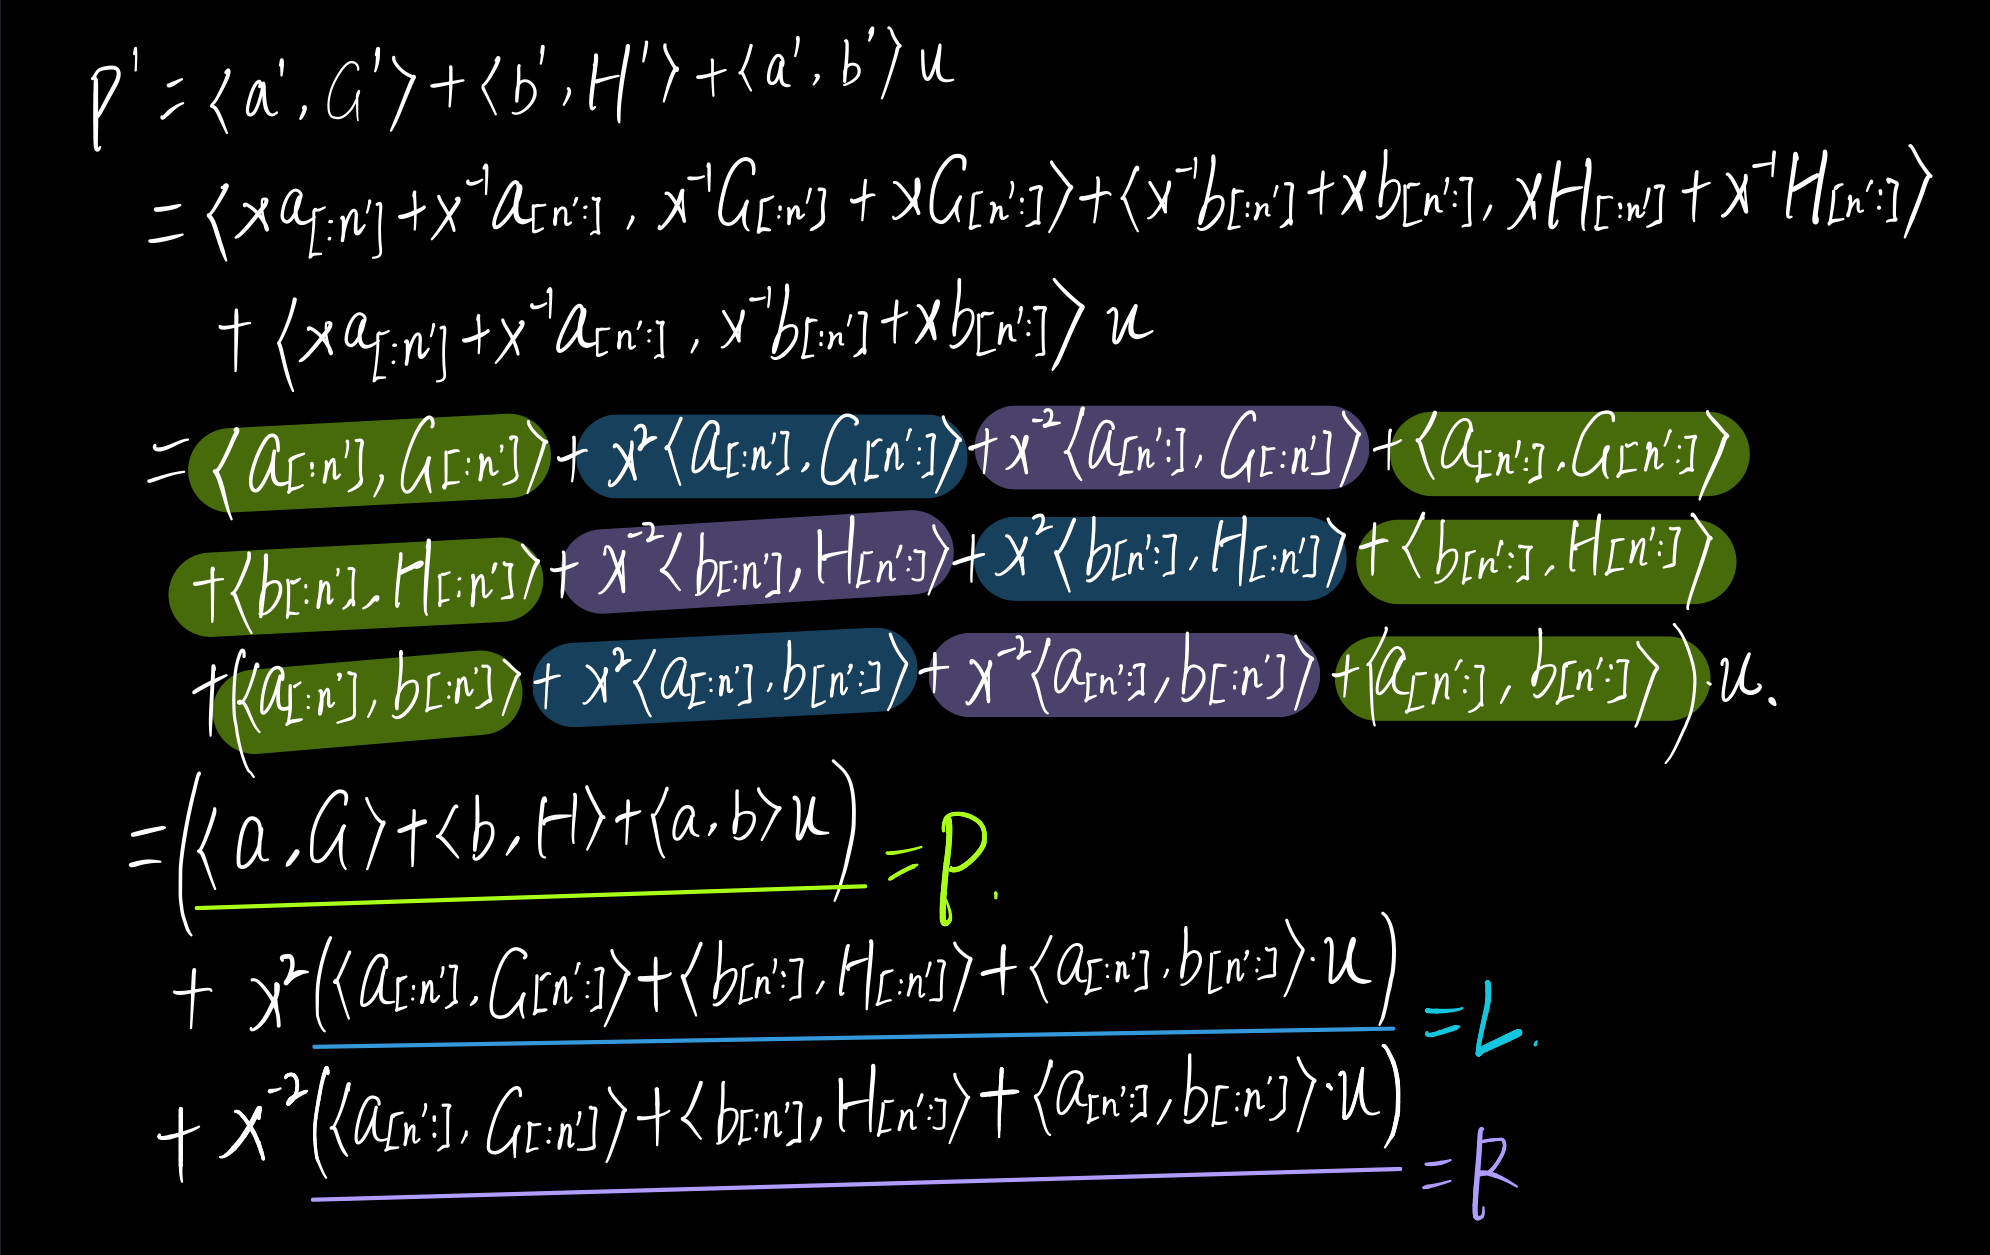 P' = ⟨a', G'⟩ + ⟨b', H'⟩ + ⟨a', b'⟩ u
= ⟨xa[:n'] + x⁻¹a[n':], x⁻¹G[:n'] + xG[n':]⟩ + ⟨x⁻¹b[:n'] + xb[n':], xH[:n'] + x⁻¹H[n':]⟩
+ ⟨xa[:n'] + x⁻¹a[n':], x⁻¹b[:n'] + xb[n':]⟩ u
= ⟨a[:n'], G[:n']⟩ + x²⟨a[:n'], G[n':]⟩ + x⁻²⟨a[n':], G[:n']⟩ + ⟨a[n':], G[n':]⟩
+ ⟨b[:n'], H[:n']⟩ + x⁻²⟨b[:n'], H[n':]⟩ + x²⟨b[n':], H[:n']⟩ + ⟨b[n':], H[n':]⟩
+ (⟨a[:n'], b[:n']⟩ + x²⟨a[:n'], b[n':]⟩ + x⁻²⟨a[n':], b[:n']⟩ + ⟨a[n':], b[n':]⟩) · u.
= (⟨a, G⟩ + ⟨b, H⟩ + ⟨a, b⟩ u) = P.
+ x²(⟨a[:n'], G[n':]⟩ + ⟨b[n':], H[:n']⟩ + ⟨a[:n'], b[n':]⟩ · u) = L.
+ x⁻²(⟨a[n':], G[:n']⟩ + ⟨b[:n'], H[n':]⟩ + ⟨a[n':], b[:n']⟩ · u) = R